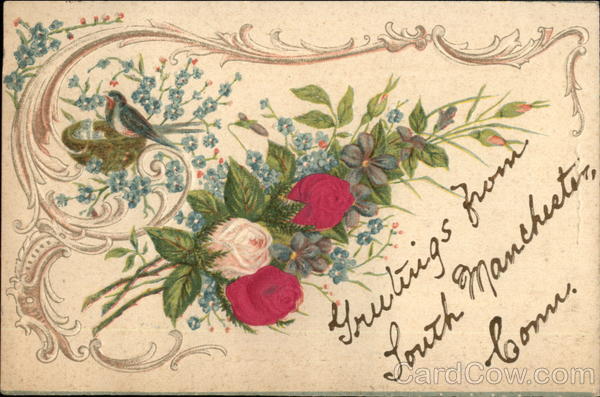 Greetings from
South Manchester,
Conn.
CardCow.com